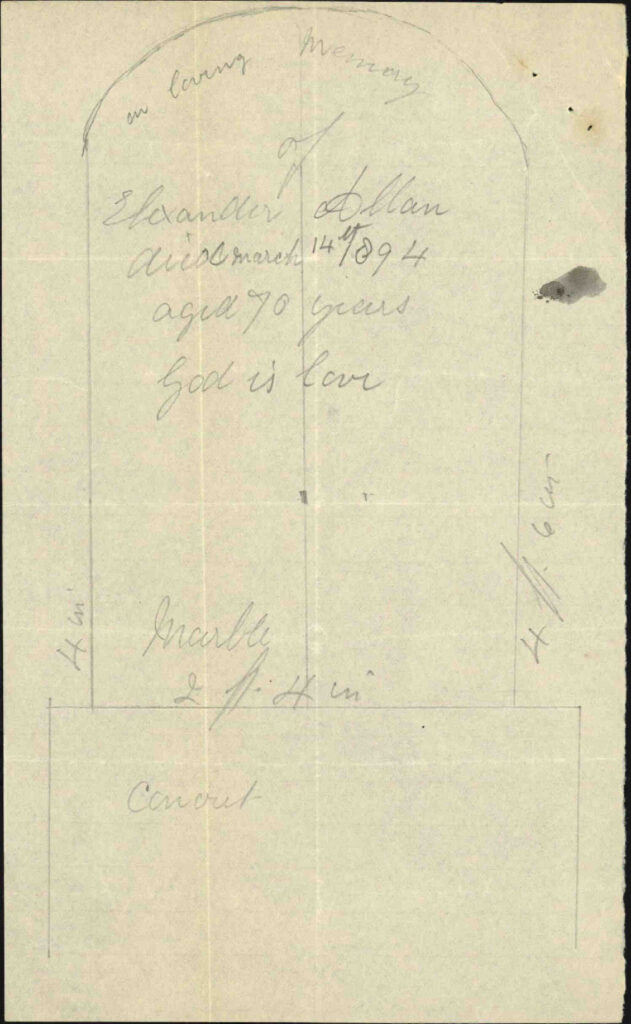 in loving Memory
of
Elexander Allan
died march 14th 1894
aged 70 years
God is love
4 in
4 ft. 6 in
Marble
2 ft. 4 in